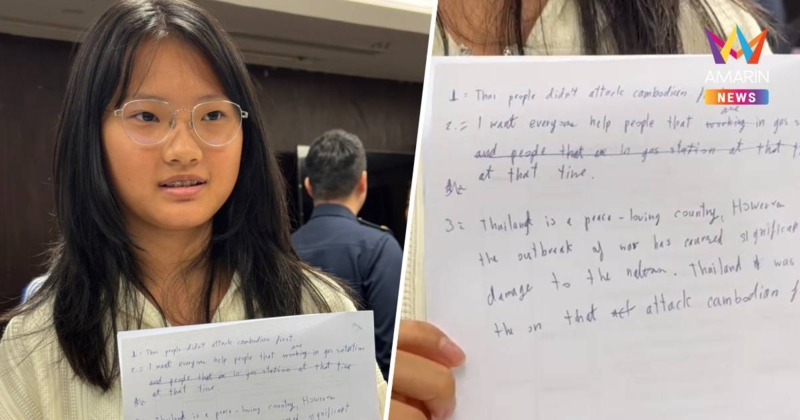 AMARIN
NEWS
1 = Thai people didn't attack cambodian first.
are
2.= I want everyone help people that working in gas station
and people that in gas station at that time
at that time.
3 = Thailand is a peace-loving country, However
1 = Thai people didn't attack cambodian
are
2.= I want everyone help people that working in gas
and people that in gas station at that
at that time.
3 = Thailand is a peace-loving country, Howevern
the outbreak of war has caused significan
damage to the nation. Thailand was
the on that act attack cambodian